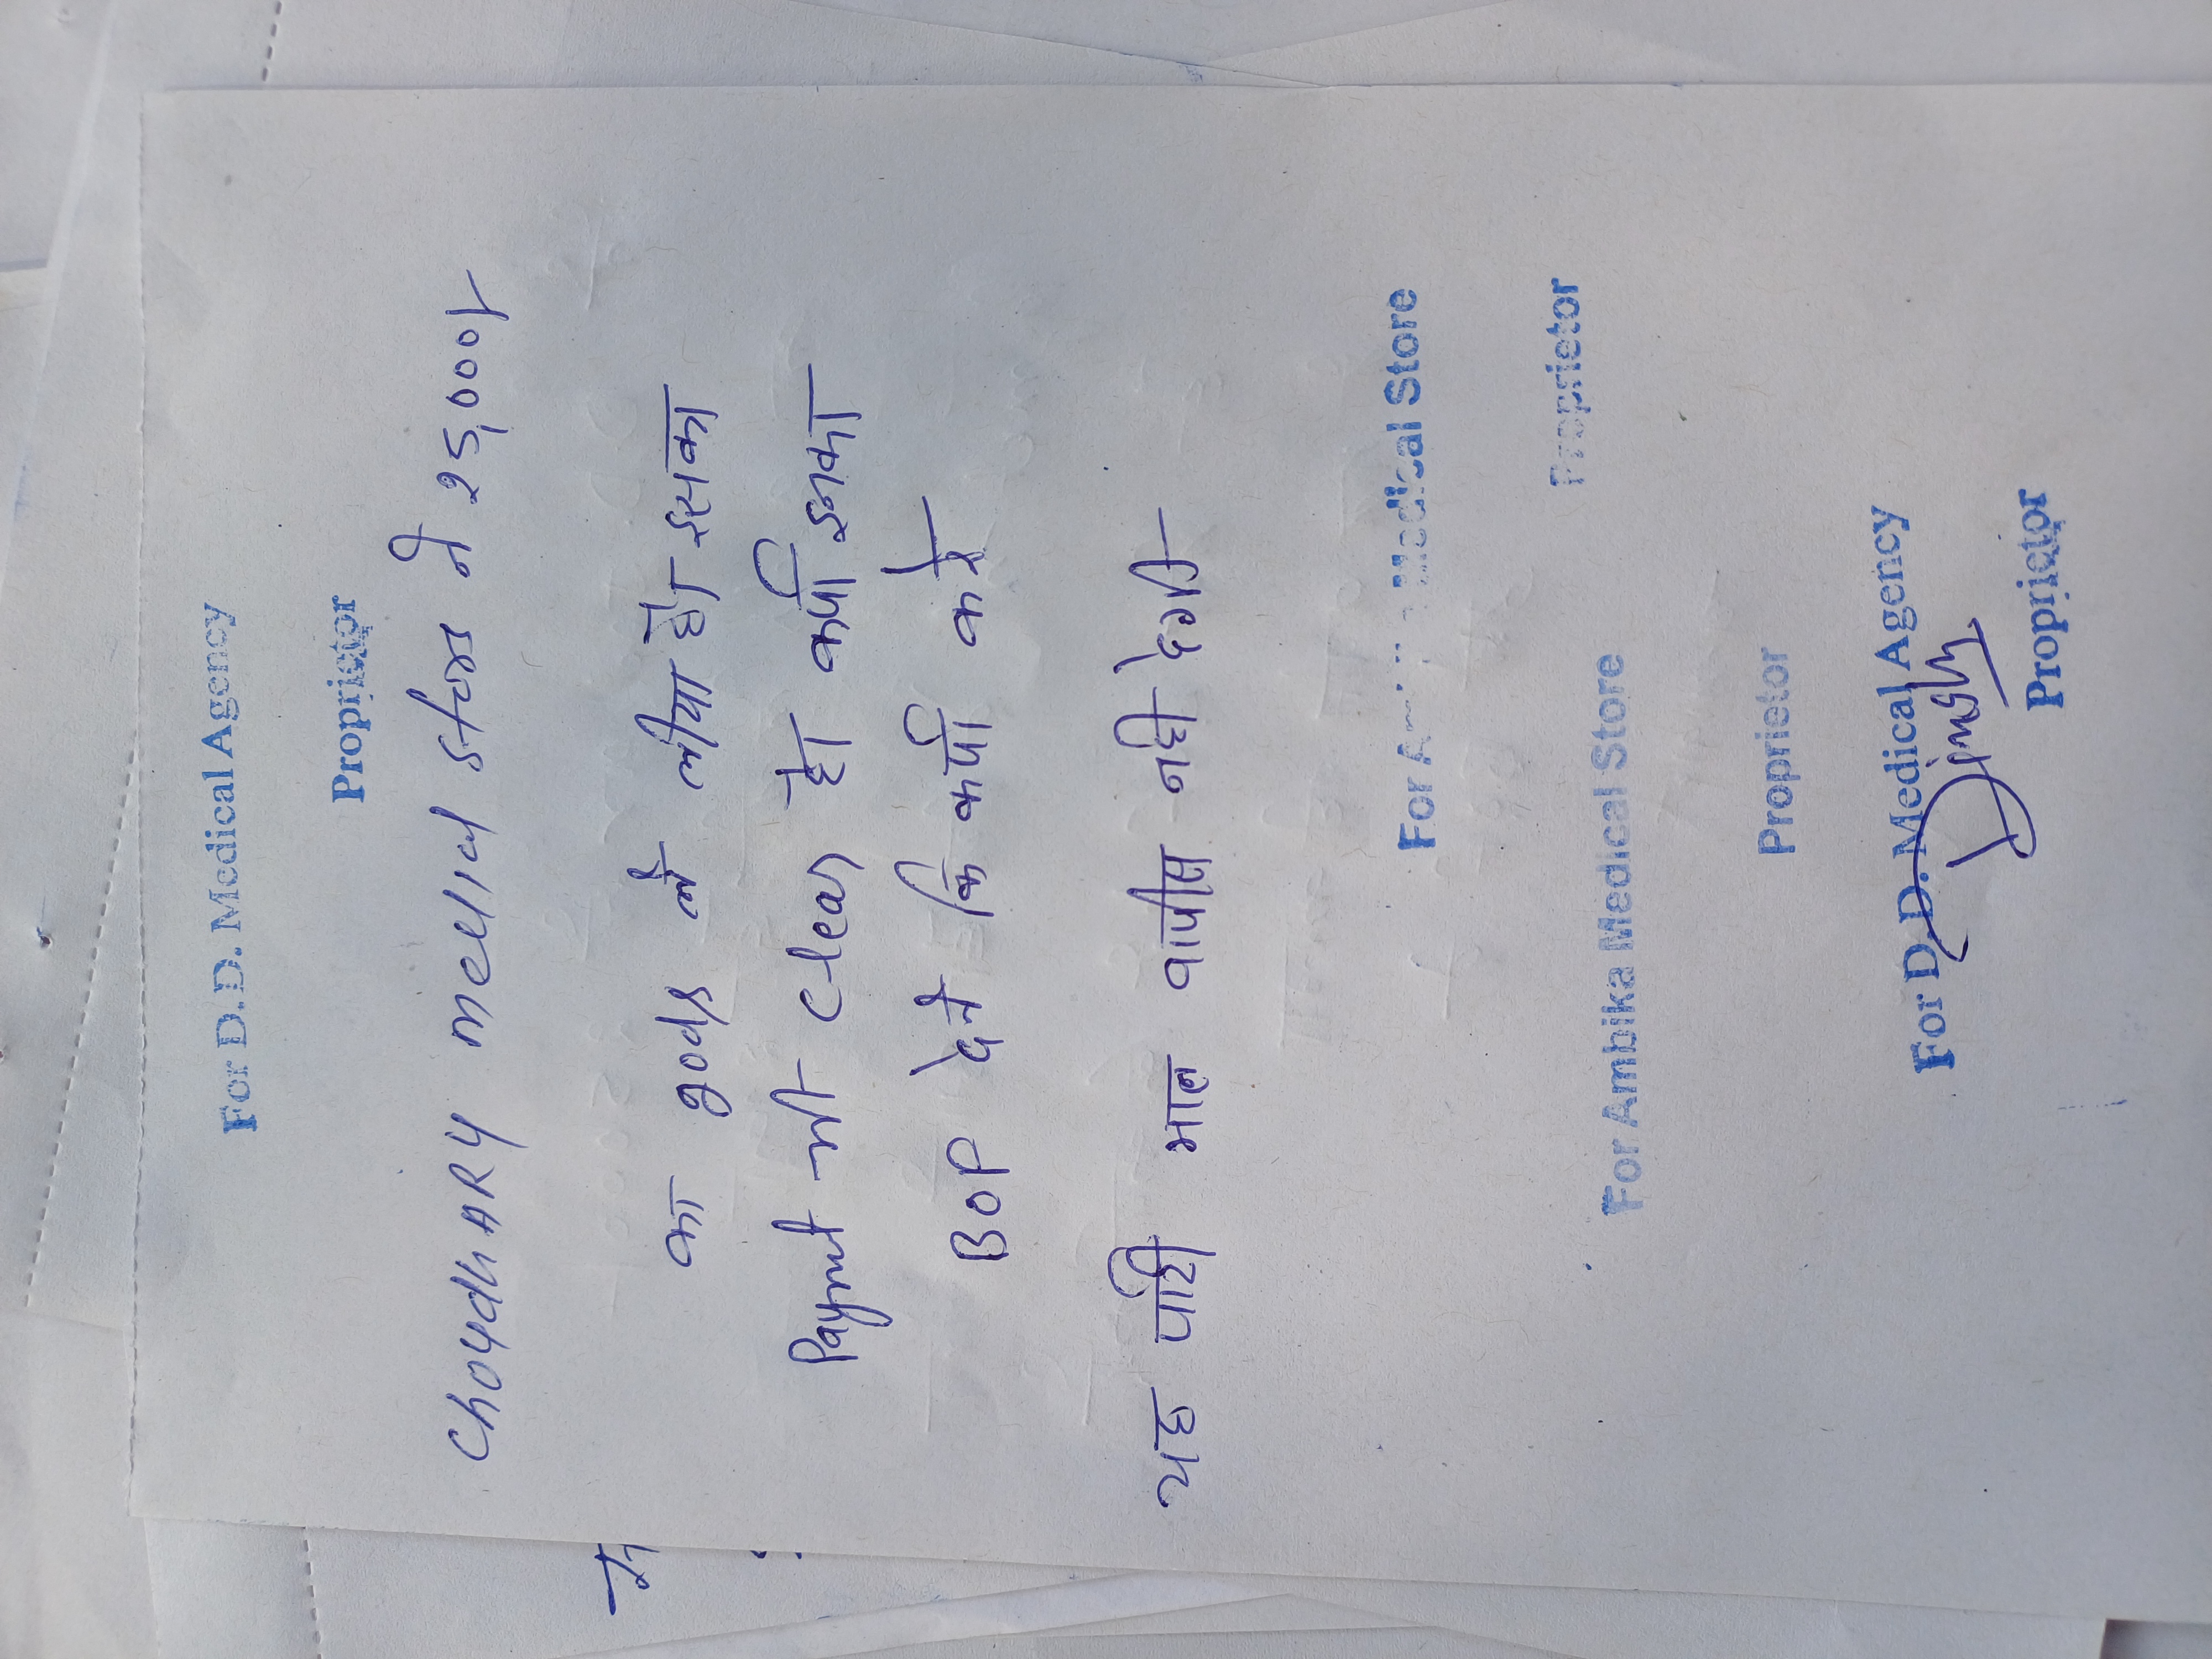 For D.D. Medical Agency
Proprietor
ChoydhARY medical store ने 25,000/-
का goods ले लीया है। इसका
Paymt भी clear है। कंपनी इनका
BOP देने कि कंपनी करे
यह पार्टी माल वापीस नही देगी
For Medical Store
Proprietor
For Ambika Medical Store
Proprietor
For D.D. Medical Agency
Proprietor